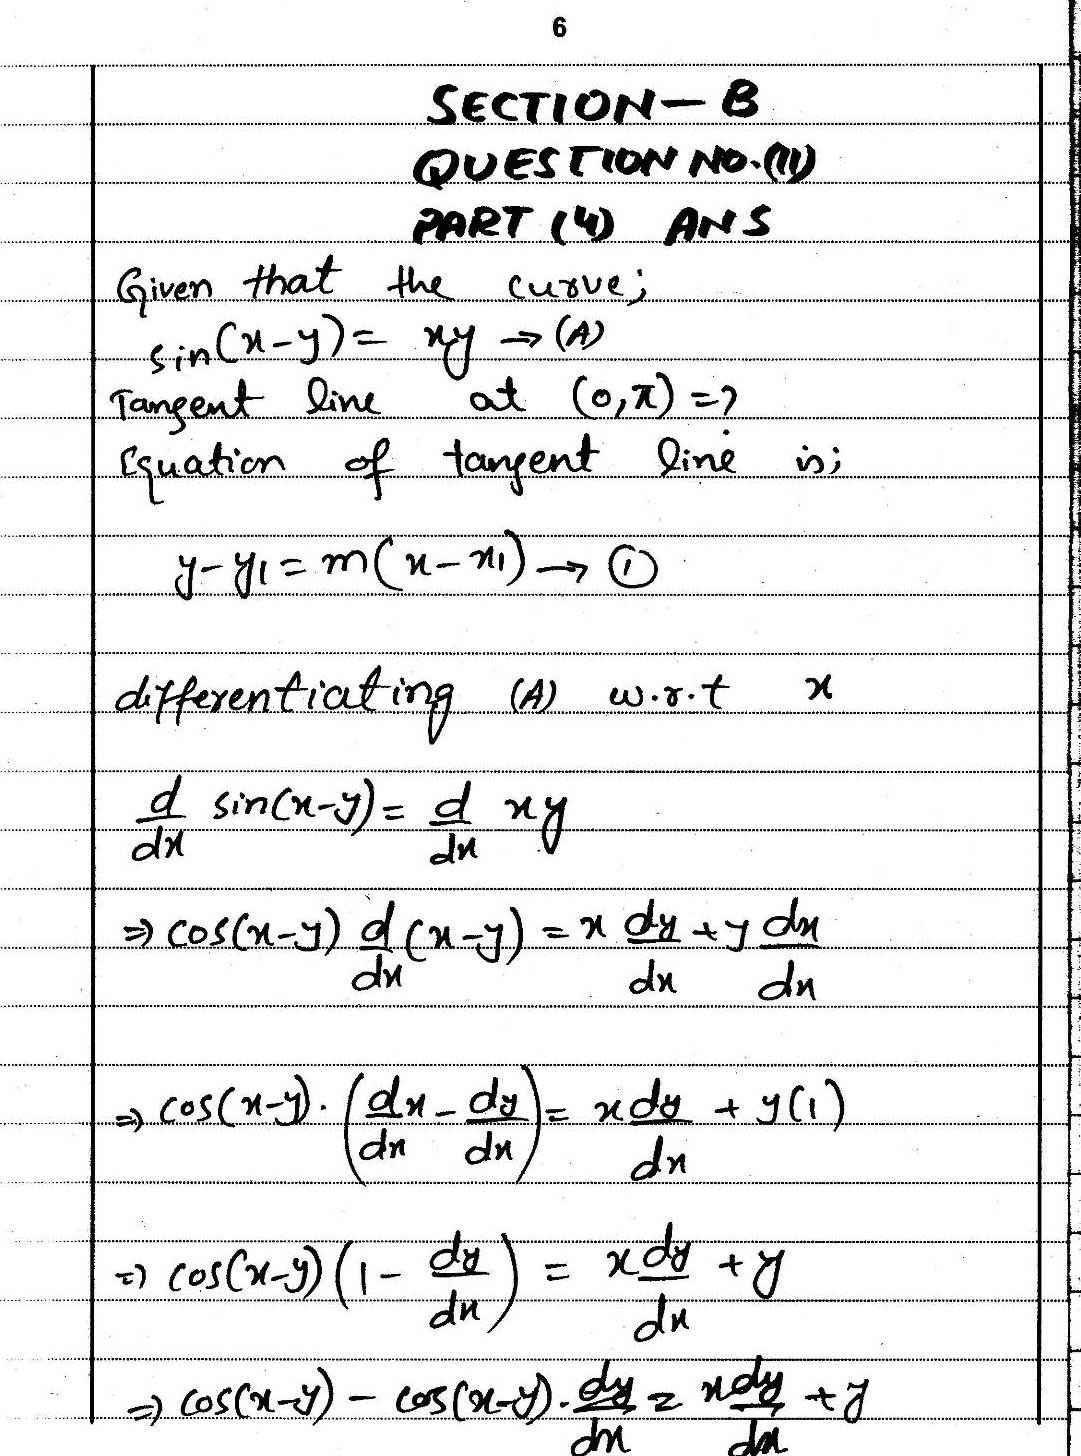 6
SECTION — B
QUESTION NO.(11)
PART (4) ANS
Given that the curve;
sin(x-y) = xy → (A)
Tangent line at (0,π) = ?
Equation of tangent line is;
y - y1 = m(x - x1) → ①
differentiating (A) w.r.t x
d/dx sin(x-y) = d/dx xy
⇒ cos(x-y) d/dx (x-y) = x dy/dx + y dx/dx
⇒ cos(x-y) · (dx/dx - dy/dx) = x dy/dx + y(1)
⇒ cos(x-y) (1 - dy/dx) = x dy/dx + y
⇒ cos(x-y) - cos(x-y) · dy/dx = x dy/dx + y